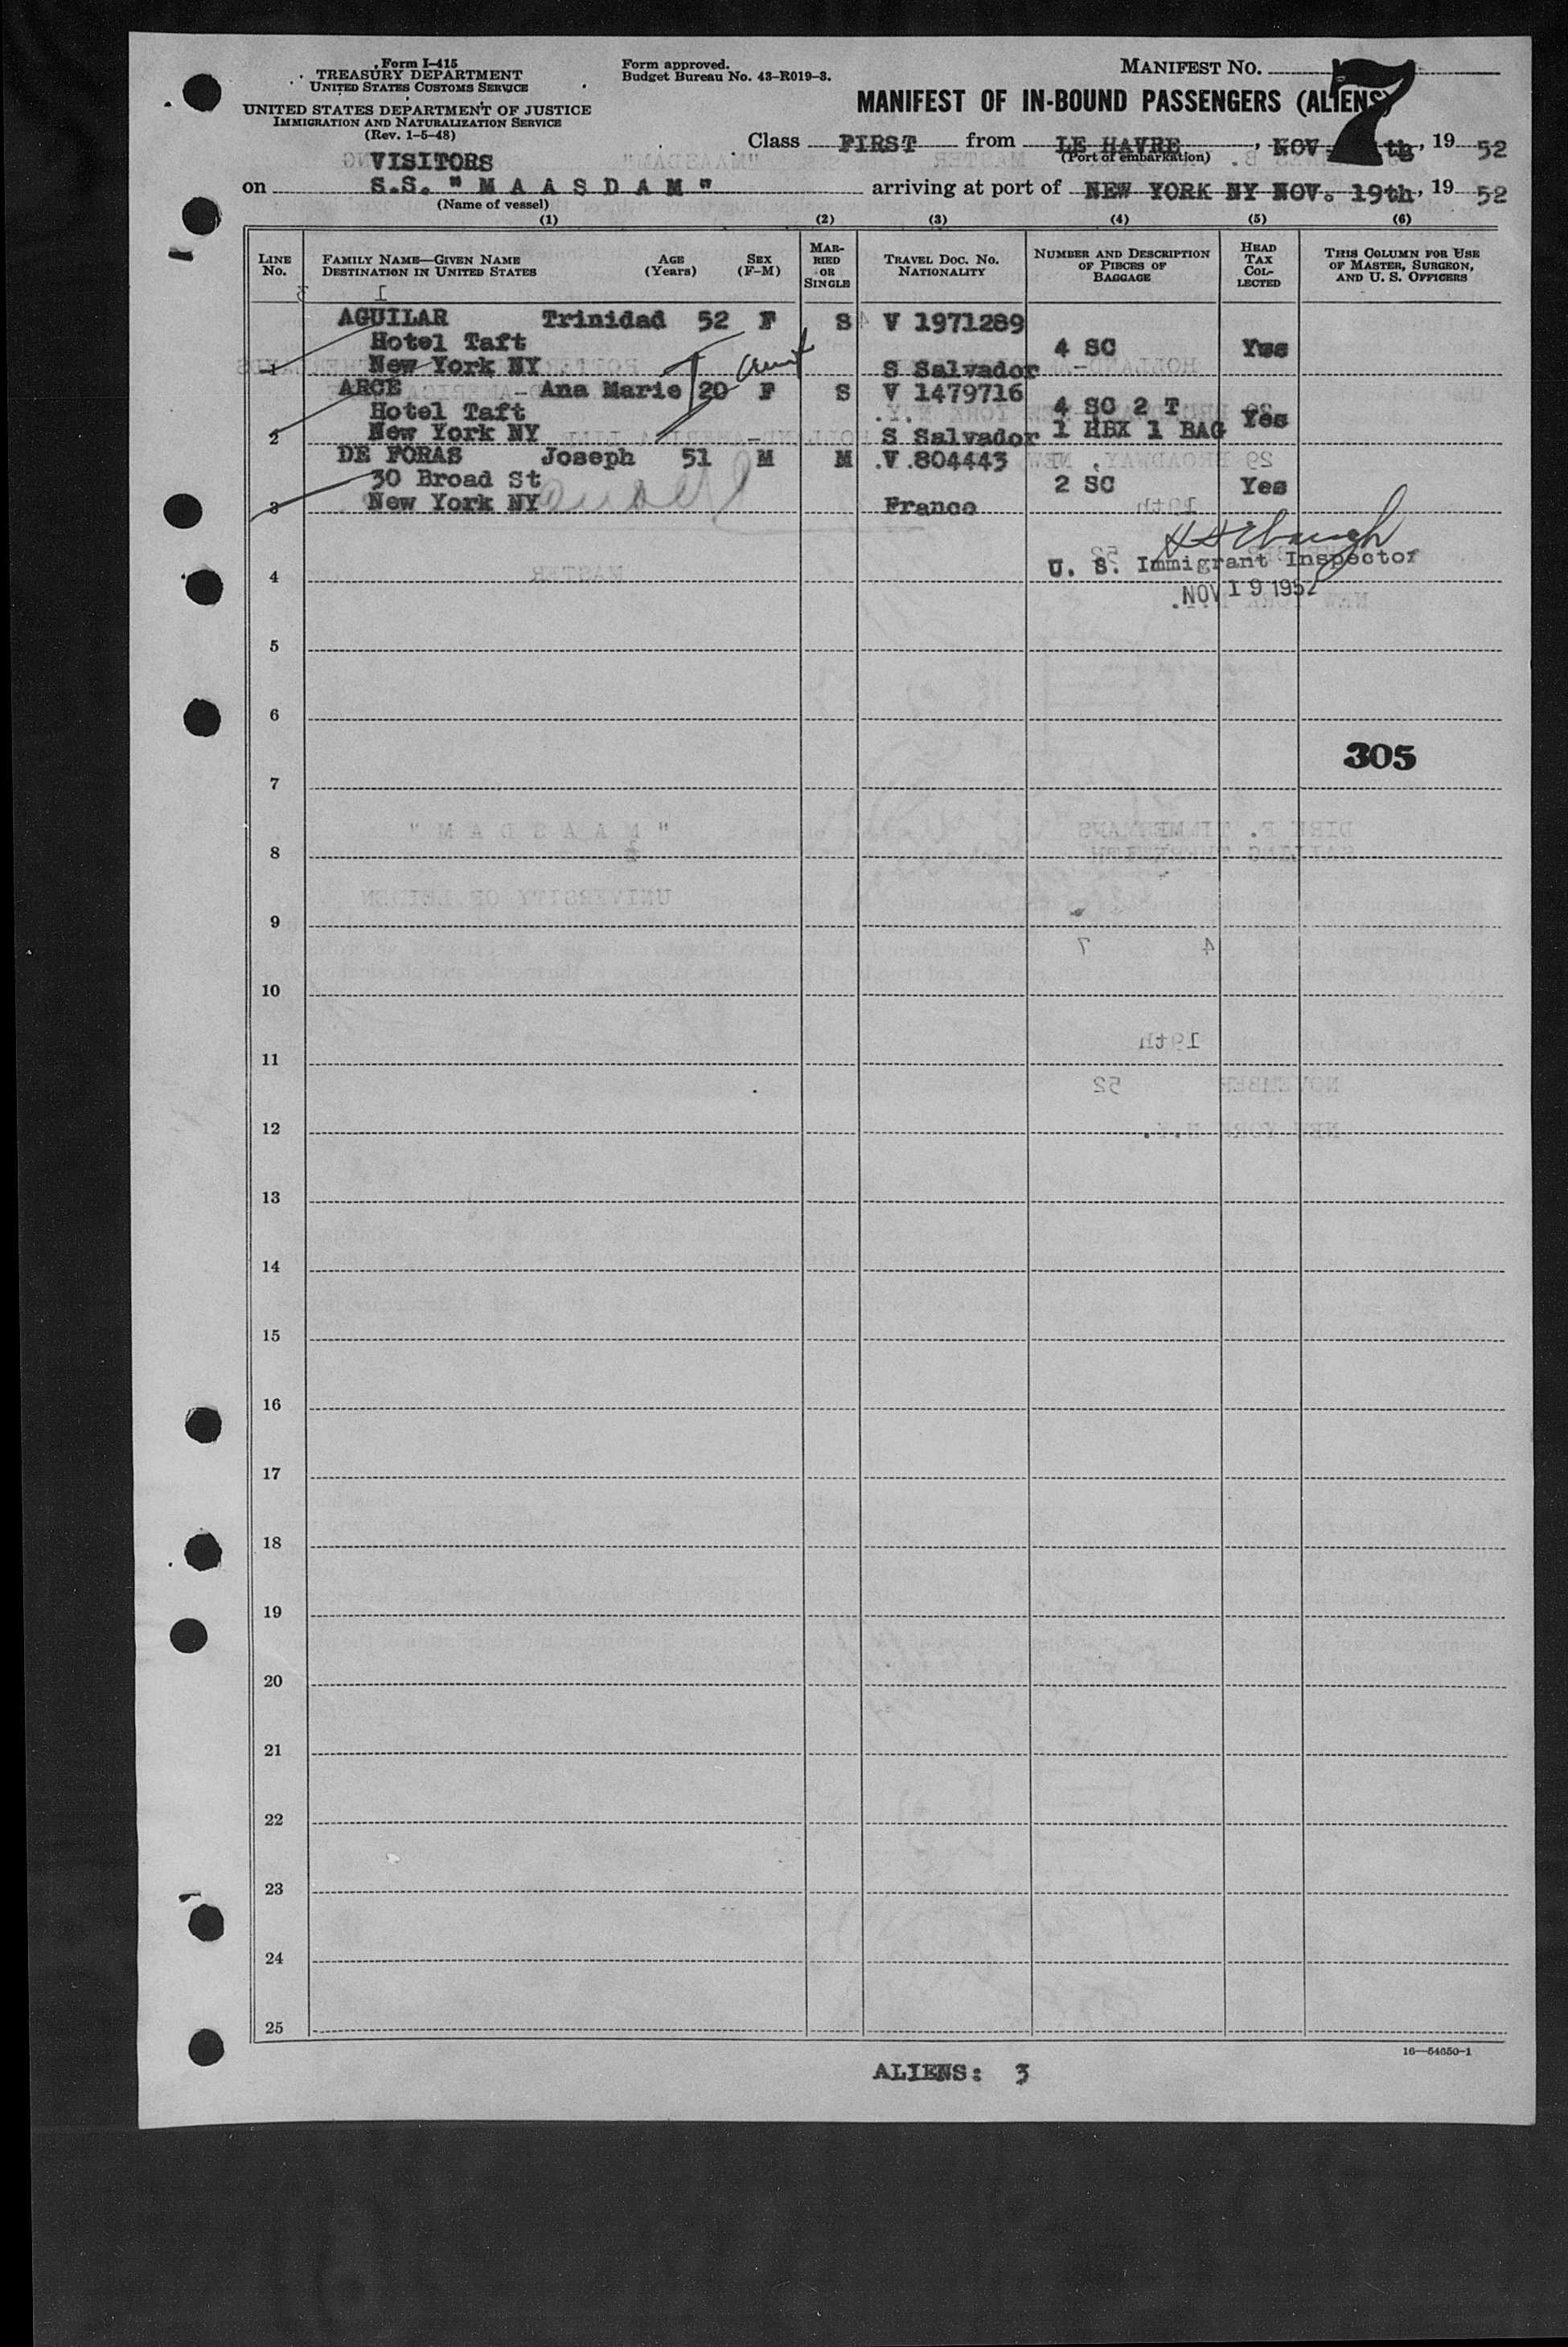 Form I-415
TREASURY DEPARTMENT
UNITED STATES CUSTOMS SERVICE
UNITED STATES DEPARTMENT OF JUSTICE
IMMIGRATION AND NATURALIZATION SERVICE
(Rev. 1-5-48)
Form approved.
Budget Bureau No. 43-R019-3.
MANIFEST NO. 7
MANIFEST OF IN-BOUND PASSENGERS (ALIENS)
Class FIRST from LE HAVRE, NOV th, 19 52
(Port of embarkation)
VISITORS
on S.S. "MAASDAM" arriving at port of NEW YORK NY NOV. 19th, 19 52
(Name of vessel)
(1) (2) (3) (4) (5) (6)
LINE NO.
FAMILY NAME—GIVEN NAME
DESTINATION IN UNITED STATES
AGE (YEARS)
SEX (F-M)
MARRIED OR SINGLE
TRAVEL DOC. NO.
NATIONALITY
NUMBER AND DESCRIPTION OF PIECES OF BAGGAGE
HEAD TAX COLLECTED
THIS COLUMN FOR USE OF MASTER, SURGEON, AND U. S. OFFICERS
AGUILAR Trinidad 52 F S V 1971289
Hotel Taft 4 SC Yes
1 New York NY aunt S Salvador
ARCE - Ana Marie 20 F S V 1479716
Hotel Taft 4 SC 2 T Yes
2 New York NY S Salvador 1 HBX 1 BAG
DE FORAS Joseph 51 M M V 804443
30 Broad St 2 SC Yes
3 New York NY France
U. S. Immigrant Inspector
4
NOV 19 1952
5
6
305
7
8
9
10
11
12
13
14
15
16
17
18
19
20
21
22
23
24
25
16—54650-1
ALIENS: 3